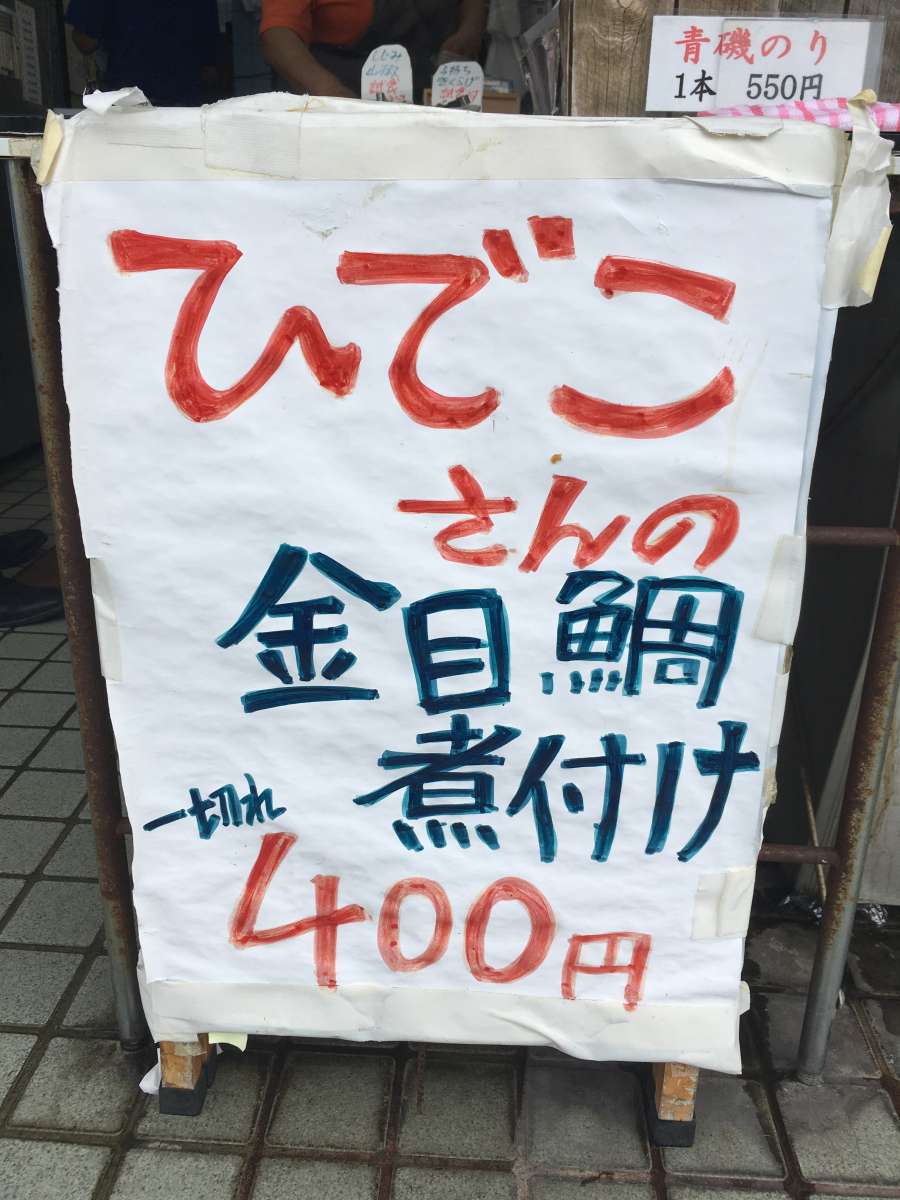 青磯のり
1本 550円
ひでこ
さんの
金目鯛
煮付け
一切れ
400円